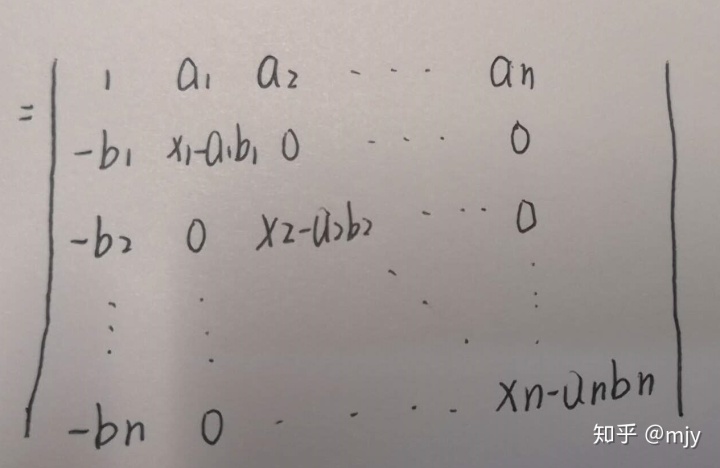 = | 1 a₁ a₂ ... an |
-b₁ x₁-a₁b₁ 0 ... 0
-b₂ 0 x₂-a₂b₂ ... 0
⋮ ⋮ ⋱ ⋮
-bn 0 . . . . xn-anbn
知乎 @mjy